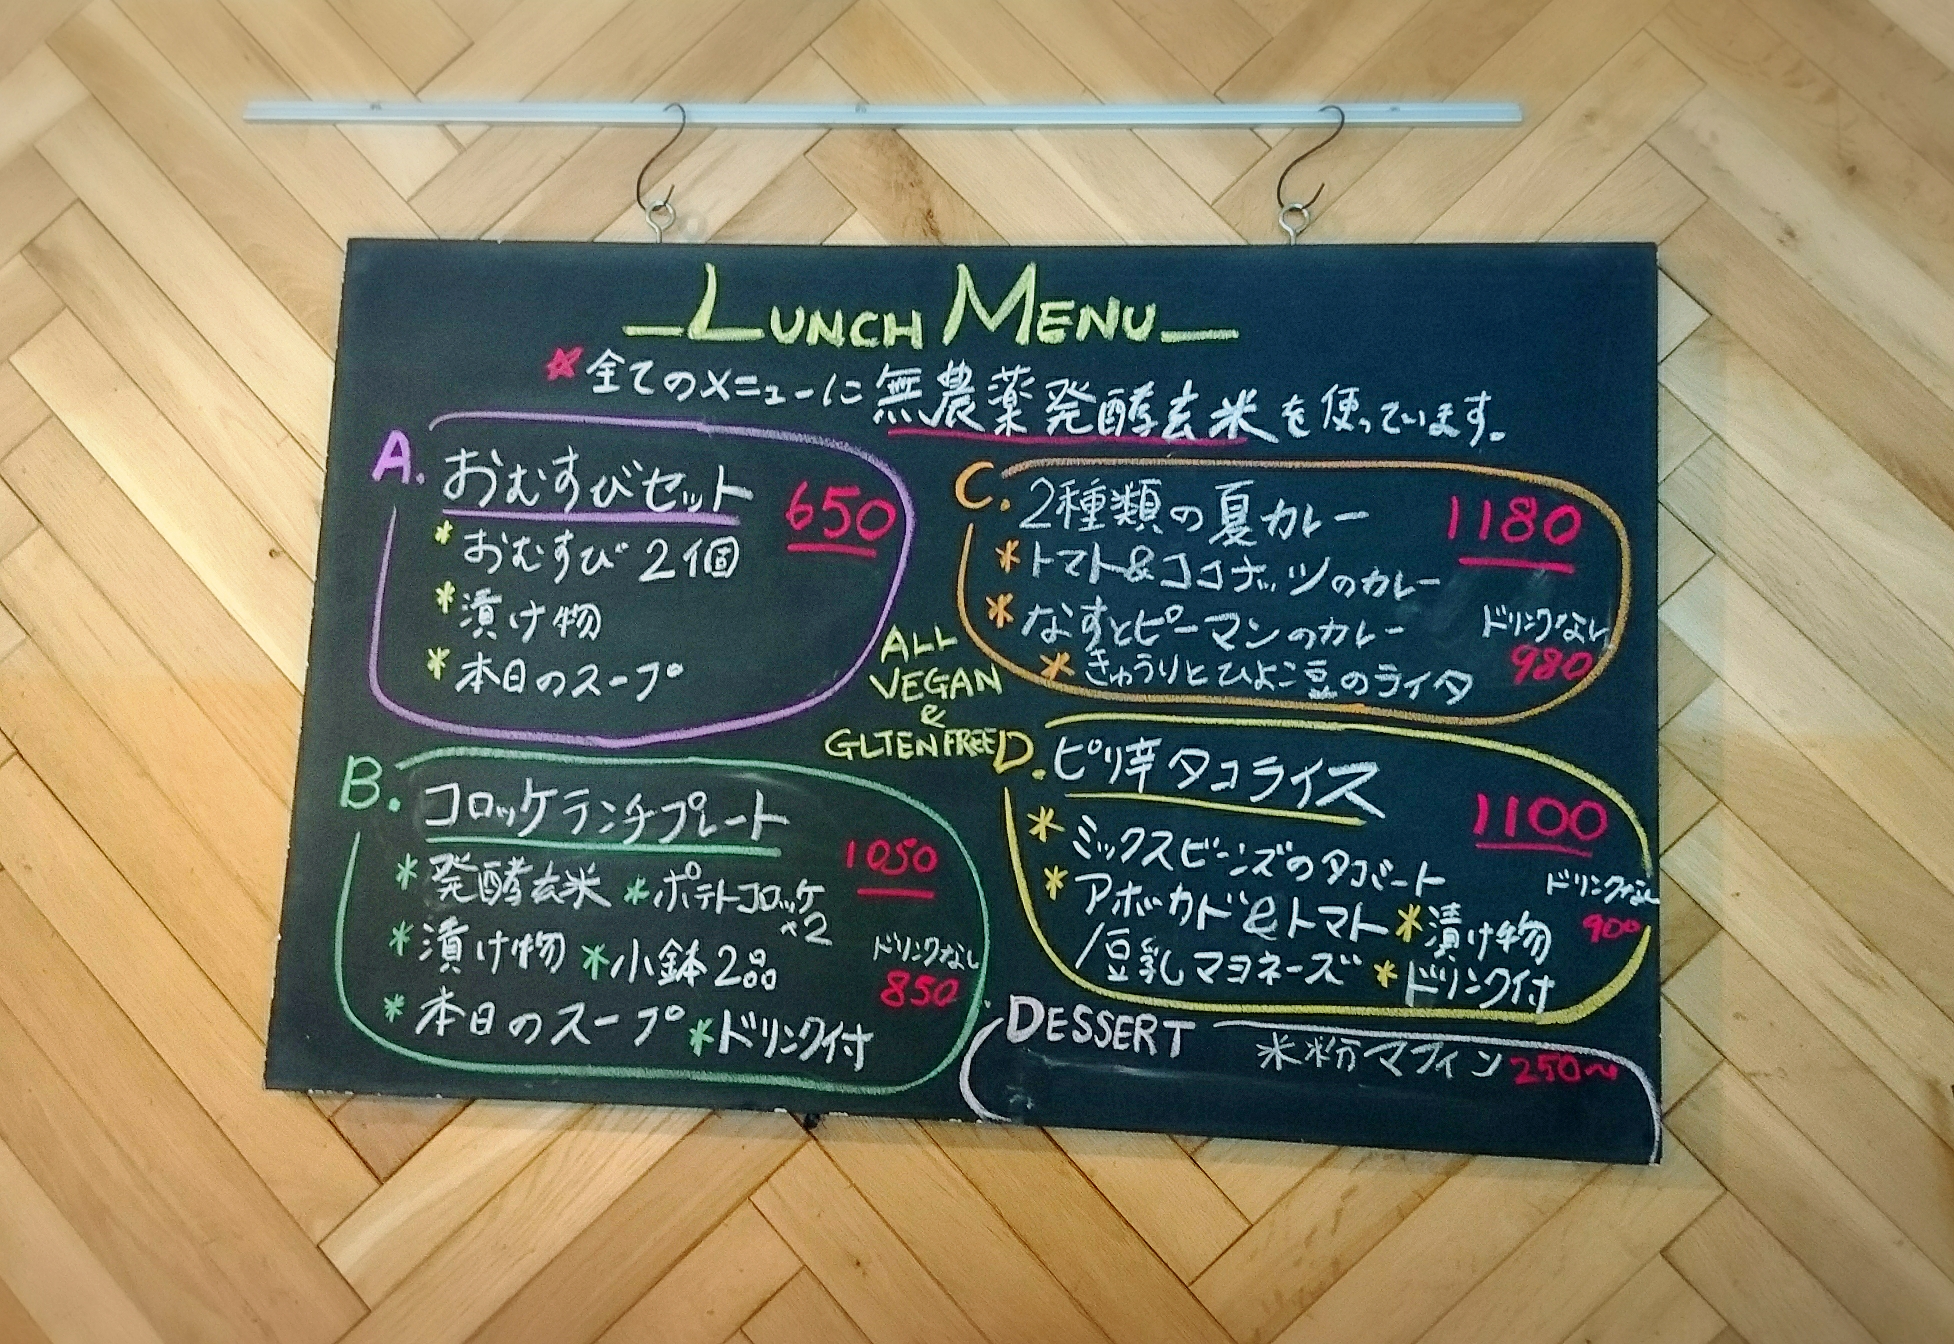 LUNCH MENU
☆全てのメニューに無農薬発酵玄米を使っています。
A. おむすびセット 650
* おむすび2個
* 漬け物
* 本日のスープ
B. コロッケランチプレート 1050
* 発酵玄米 * ポテトコロッケ×2
* 漬け物 * 小鉢2品
* 本日のスープ * ドリンク付
ドリンクなし
850
ALL
VEGAN
&
GLTEN FREE
C. 2種類の夏カレー 1180
* トマト&ココナッツのカレー
* なすとピーマンのカレー
* きゅうりとひよこ豆のライタ
ドリンクなし
980
D. ピリ辛タコライス 1100
* ミックスビーンズのタコミート
* アボカド&トマト * 漬け物
/豆乳マヨネーズ * ドリンク付
ドリンクなし
900
DESSERT
米粉マフィン 250〜